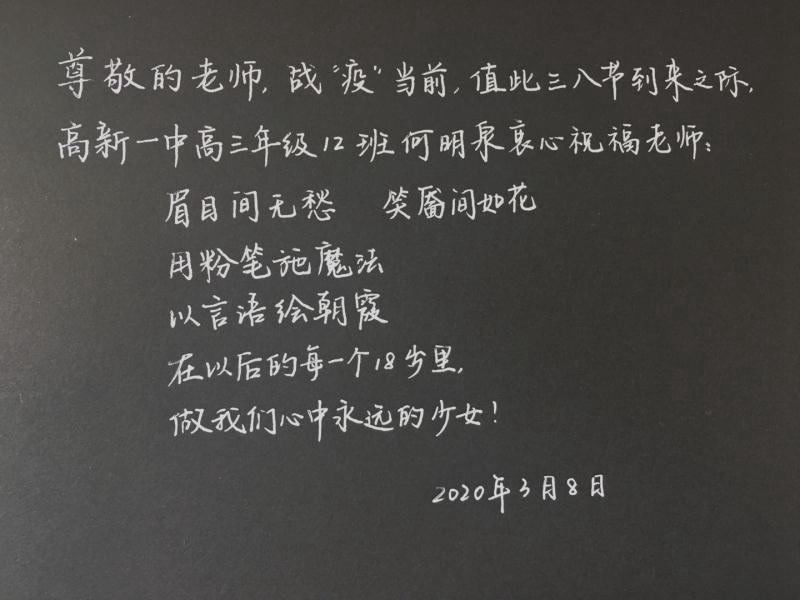 尊敬的老师，战“疫”当前，值此三八节到来之际，
高新一中高三年级12班何明泉衷心祝福老师：
眉目间无愁 笑靥间如花
用粉笔施魔法
以言语绘朝霞
在以后的每一个18岁里，
做我们心中永远的少女！
2020年3月8日